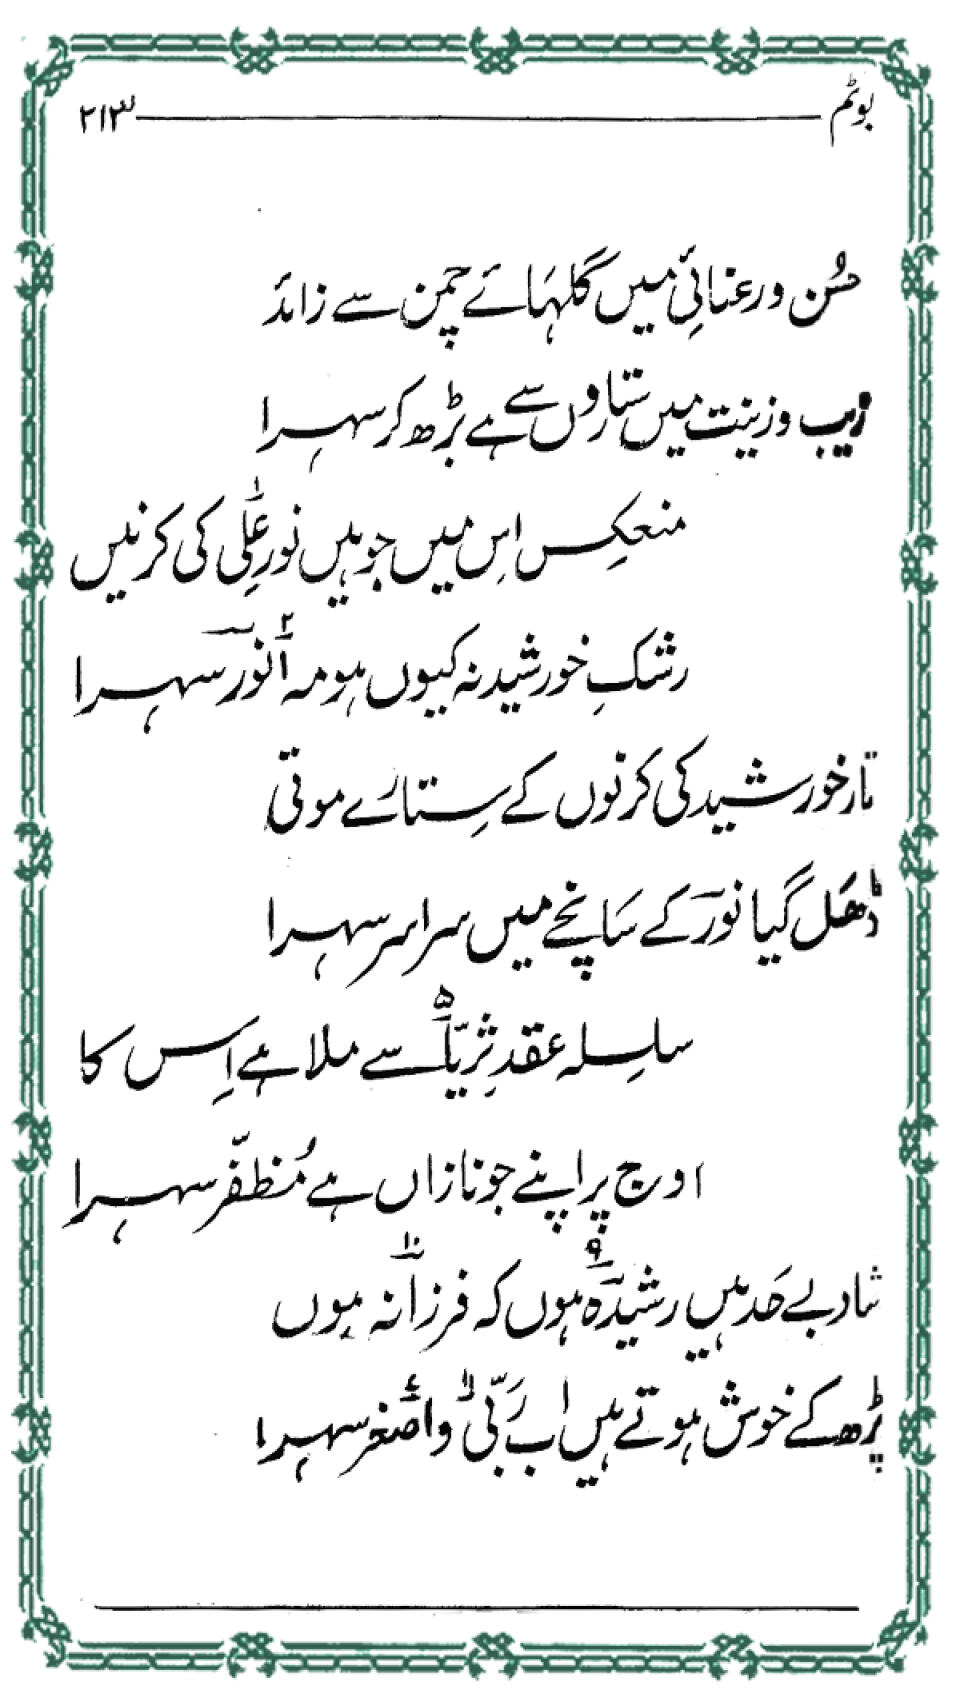 بوٹم ۲۱۳
حُسن ورعنائی میں گلہائے چمن سے زائد
زیب وزینت میں ستاروں سے ہے بڑھ کر سہرا
منعکس اِس میں جو ہیں نورِ علی۱ کی کرنیں
رشکِ خورشید نہ کیوں ہو مہ انور۲ سہرا
تار خورشید کی کرنوں کے ستارے موتی
ڈھل گیا نور کے سانچے میں سراسر سہرا
سلسلہ عقد ثریّا۵ سے ملا ہے اِس کا
اوج پر اپنے جو نازاں ہے مُظفّر سہرا
شاد بے حد ہیں رشیدہ۹ ہوں کہ فرزانہ۱۰ ہوں
پڑھ کے خوش ہوتے ہیں اب رَبّی۱۱ واصغر سہرا